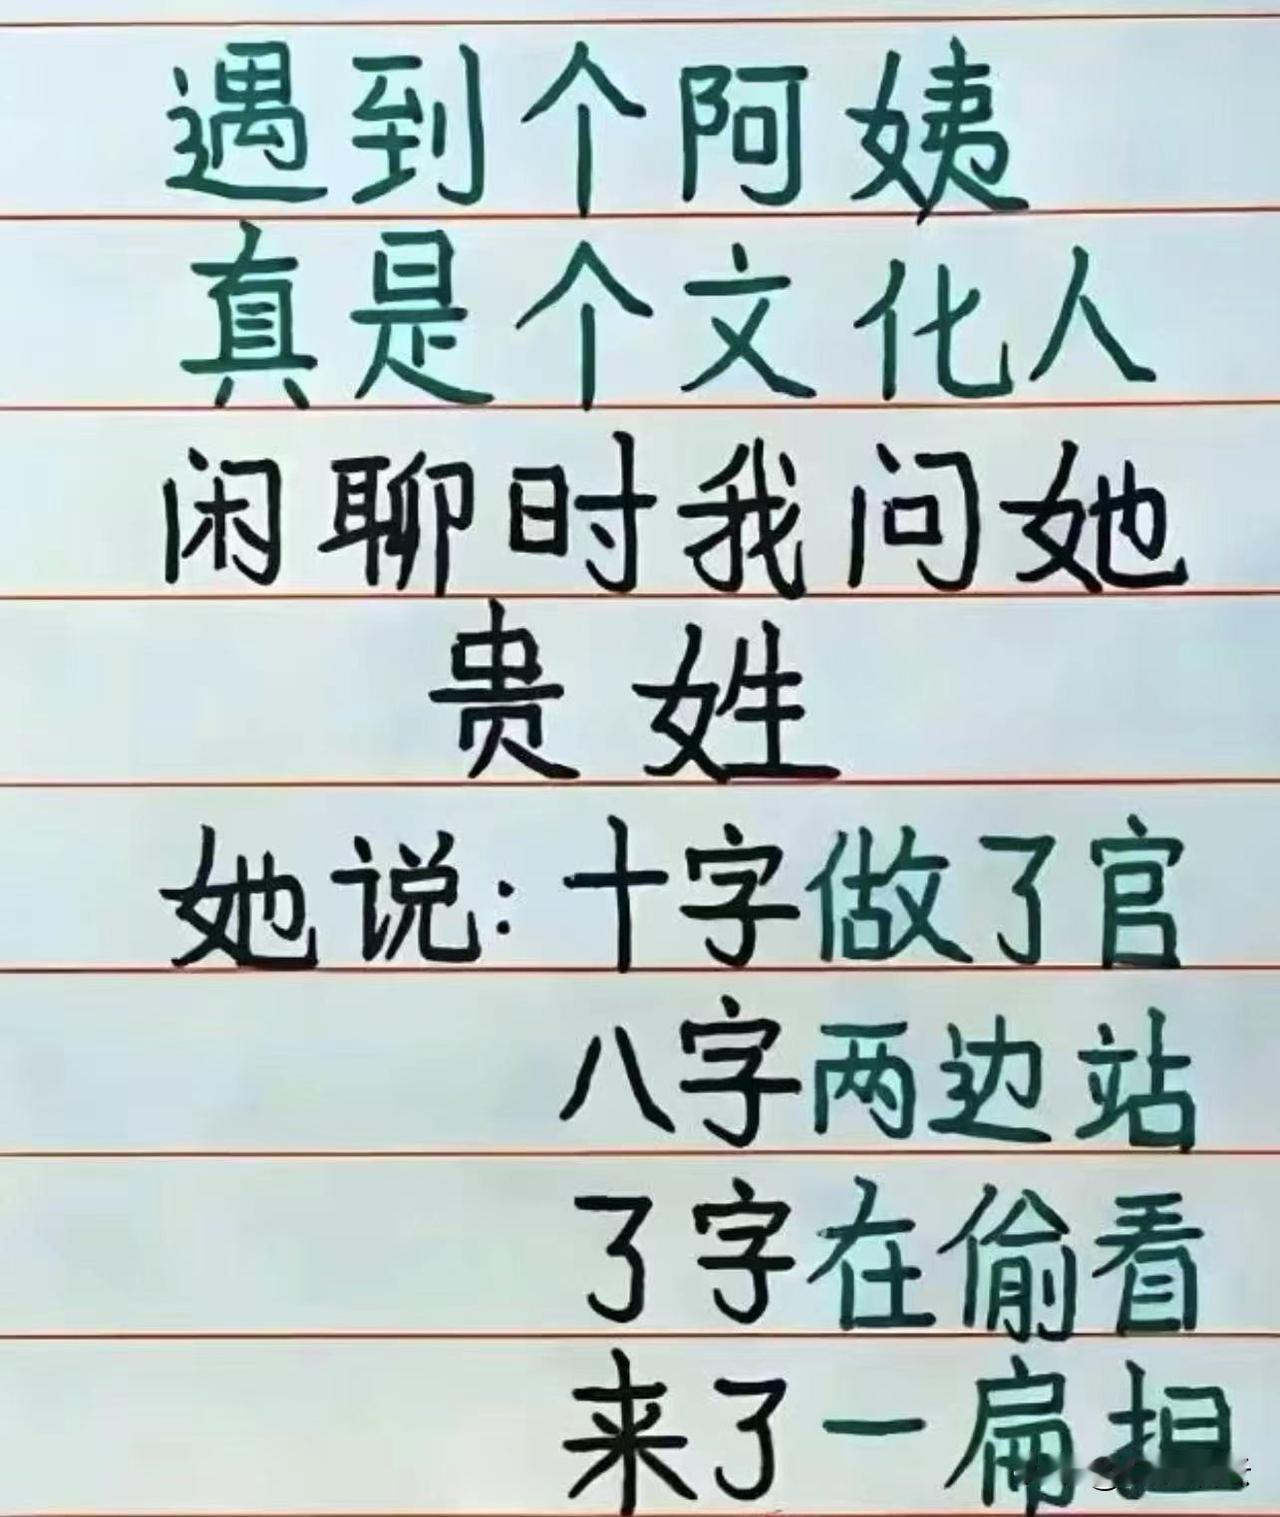 遇到个阿姨
真是个文化人
闲聊时我问她
贵姓
她说:十字做了官
八字两边站
了字在偷看
来了一扁担